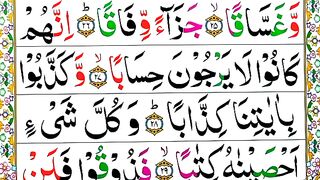 وَّغَسَّاقًا ﴿٢٥﴾ جَزَآءً وِّفَاقًا ﴿٢٦﴾ اِنَّهُمْ
كَانُوْا لَا يَرْجُوْنَ حِسَابًا ﴿٢٧﴾ وَّكَذَّبُوْا
بِاٰيٰتِنَا كِذَّابًا ﴿٢٨﴾ وَكُلَّ شَىْءٍ
اَحْصَيْنٰهُ كِتٰبًا ﴿٢٩﴾ فَذُوْقُوْا فَلَنْ